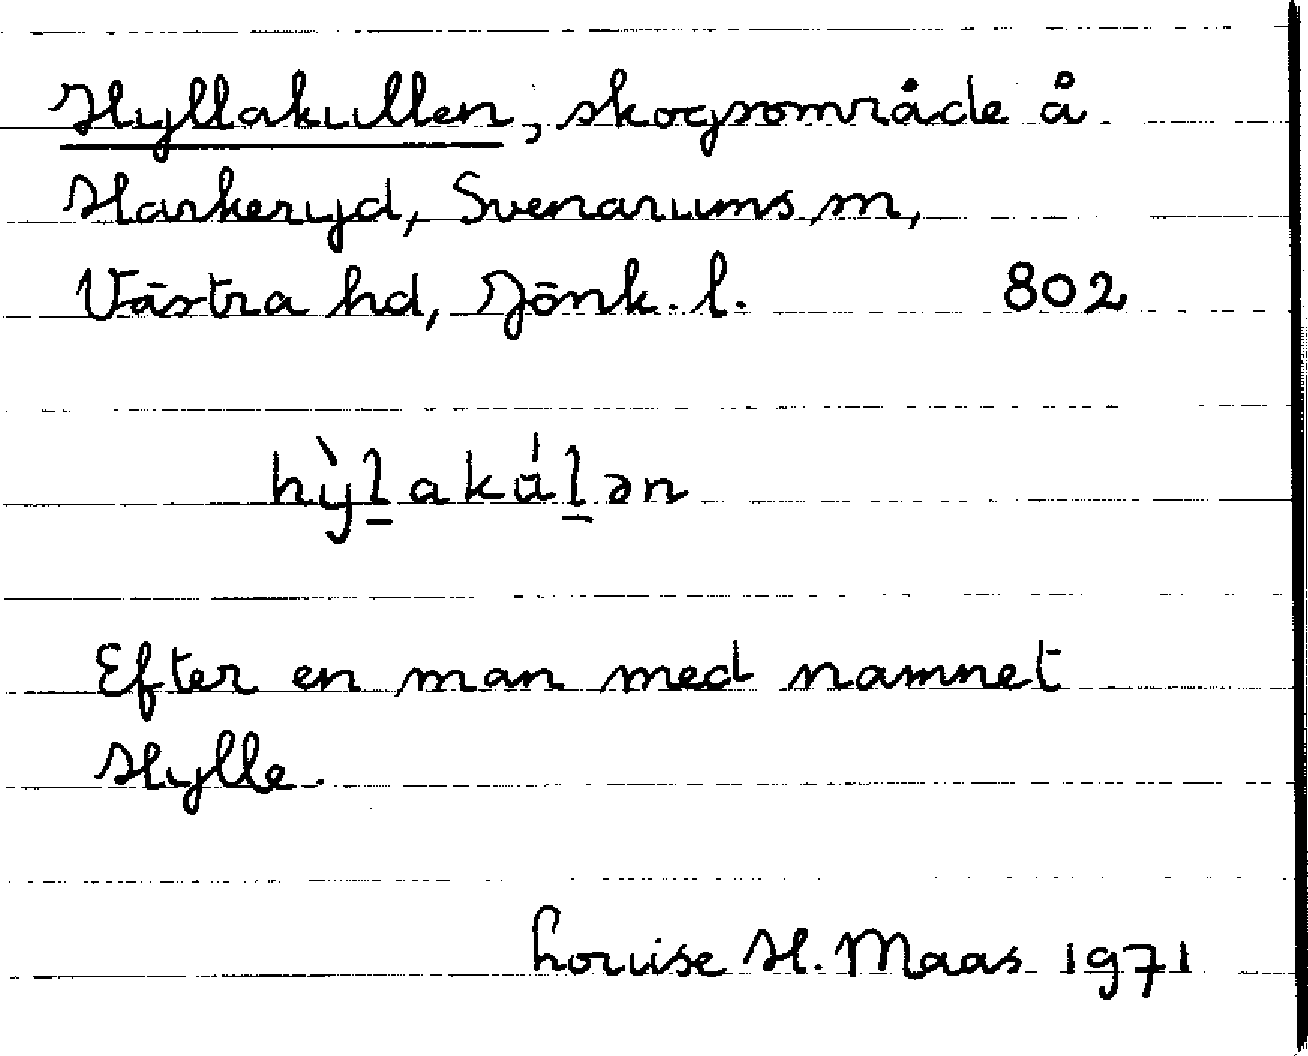 Hyllakullen, skogsområde å
Harkeryd, Svenarums sn,
Västra hd, Jönk. l. 802
hỳl̲akál̲ən
Efter en man med namnet
Hylle.
Louise H. Maas 1971